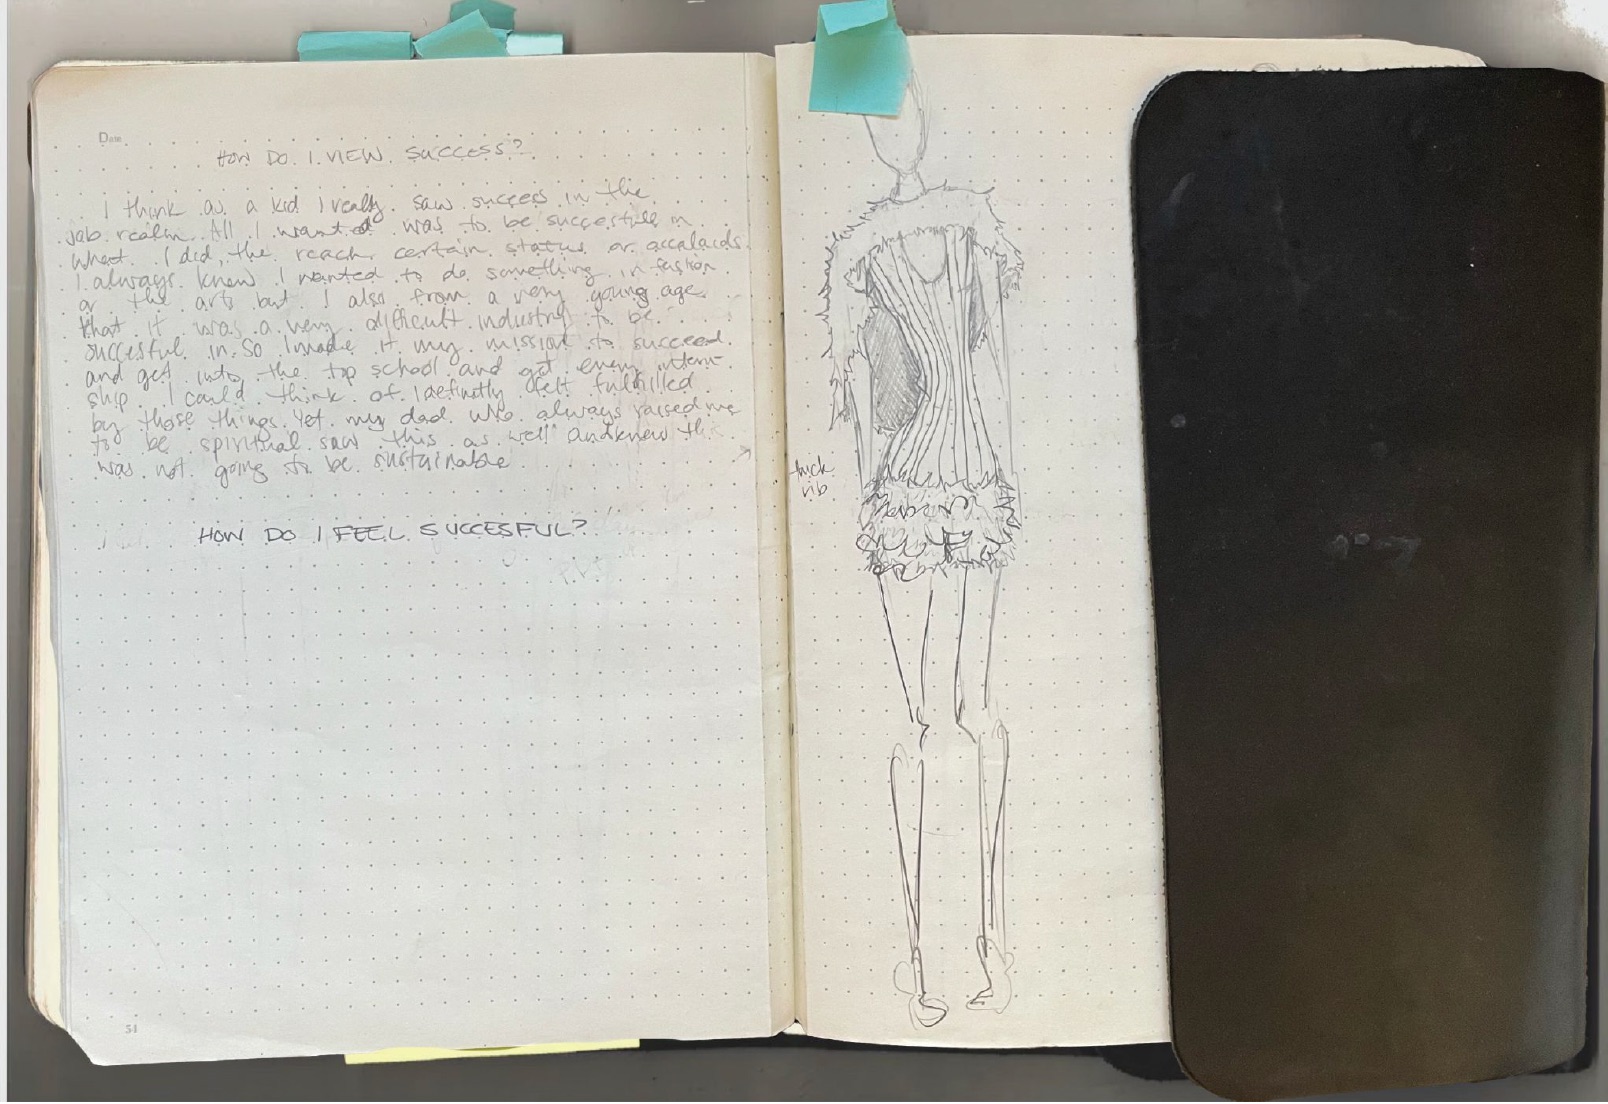 Date
HOW DO I VIEW SUCCESS?
I think as a kid I really saw success in the
job realm. All I wanted was to be succesfull in
what I did, the reach certain status or accalaids.
I always knew I wanted to do something in fashion
or the arts but I also from a very young age
that it was a very difficult industry to be
succesful in. So I made it my mission to succeed
and get into the top school and get every intern-
ship I could think of. I definitly felt fulfilled
by those things. Yet my dad who always raised me
to be spiritual saw this as well and knew this
was not going to be sustainable
HOW DO I FEEL SUCCESFUL?
51
thick
rib